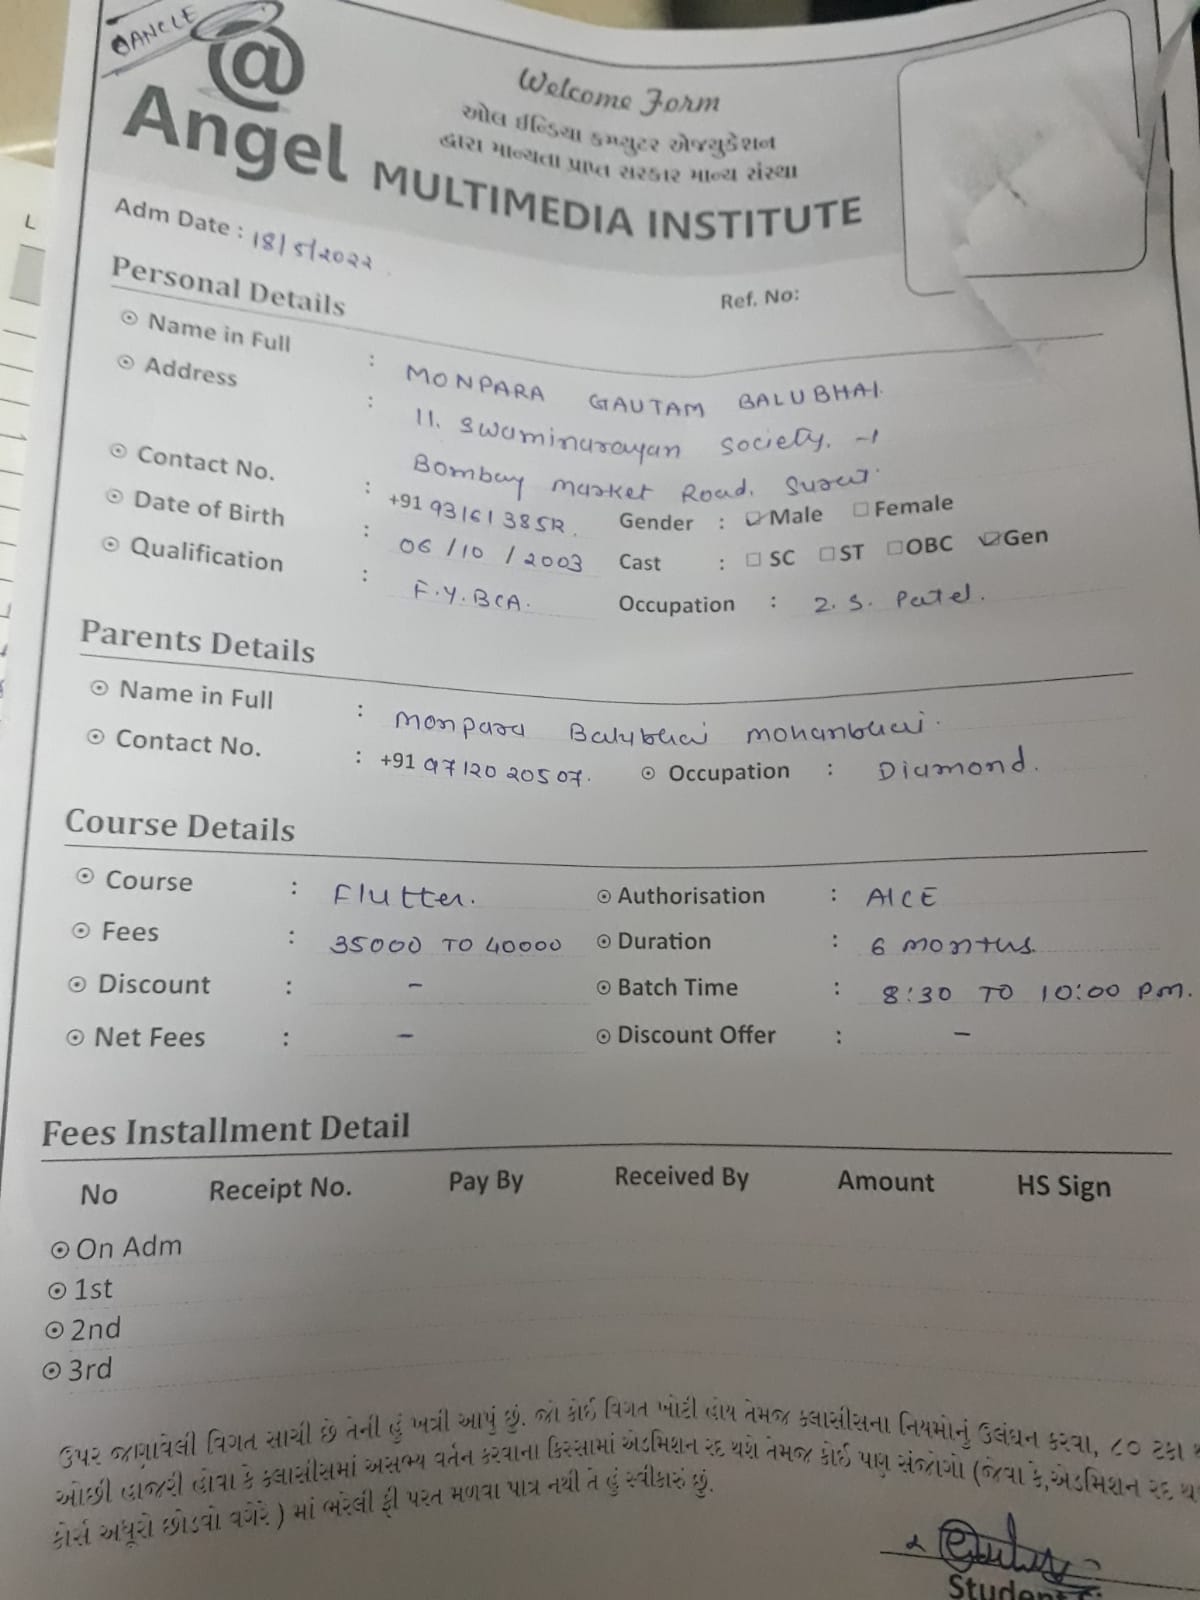 CANCLE
@
Angel MULTIMEDIA INSTITUTE
Welcome Form
ઓલ ઈન્ડિયા કમ્પ્યુટર એજ્યુકેશન
દ્વારા માન્યતા પ્રાપ્ત સરકાર માન્ય સંસ્થા
Adm Date : 18/5/2022
Ref. No:
Personal Details
Name in Full : MONPARA GAUTAM BALUBHAI.
Address : 11. Swaminarayan Society. -1
Bombay market Road. Surat.
Contact No. : +91 93161 385 Gender : Male Female
Date of Birth : 06/10/2003 Cast : SC ST OBC Gen
Qualification : F.Y.BCA. Occupation : 2.S. Patel.
Parents Details
Name in Full : Monpara Balubhai mohanbhai.
Contact No. : +91 97120 20507. Occupation : Diamond.
Course Details
Course : Flutter. Authorisation : AICE
Fees : 35000 TO 40000 Duration : 6 months.
Discount : - Batch Time : 8:30 TO 10:00 Pm.
Net Fees : - Discount Offer : -
Fees Installment Detail
No Receipt No. Pay By Received By Amount HS Sign
On Adm
1st
2nd
3rd
ઉપર જણાવેલી વિગત સાચી છે તેની હું ખત્રી આપું છું. જો કોઈ વિગત ખોટી હોય તેમજ ક્લાસીસના નિયમોનું ઉલંઘન કરવા, ૮૦ ટકા
ઓછી હાજરી હોવા કે ક્લાસીસમાં અસભ્ય વર્તન કરવાના કિસ્સામાં એડમિશન રદ થશે તેમજ કોઈ પણ સંજોગો (જેવા કે,એડમિશન રદ
કોર્સ અધૂરો છોડવો વગેરે ) માં ભરેલી ફી પરત મળવા પાત્ર નથી તે હું સ્વીકારું છું.
Student